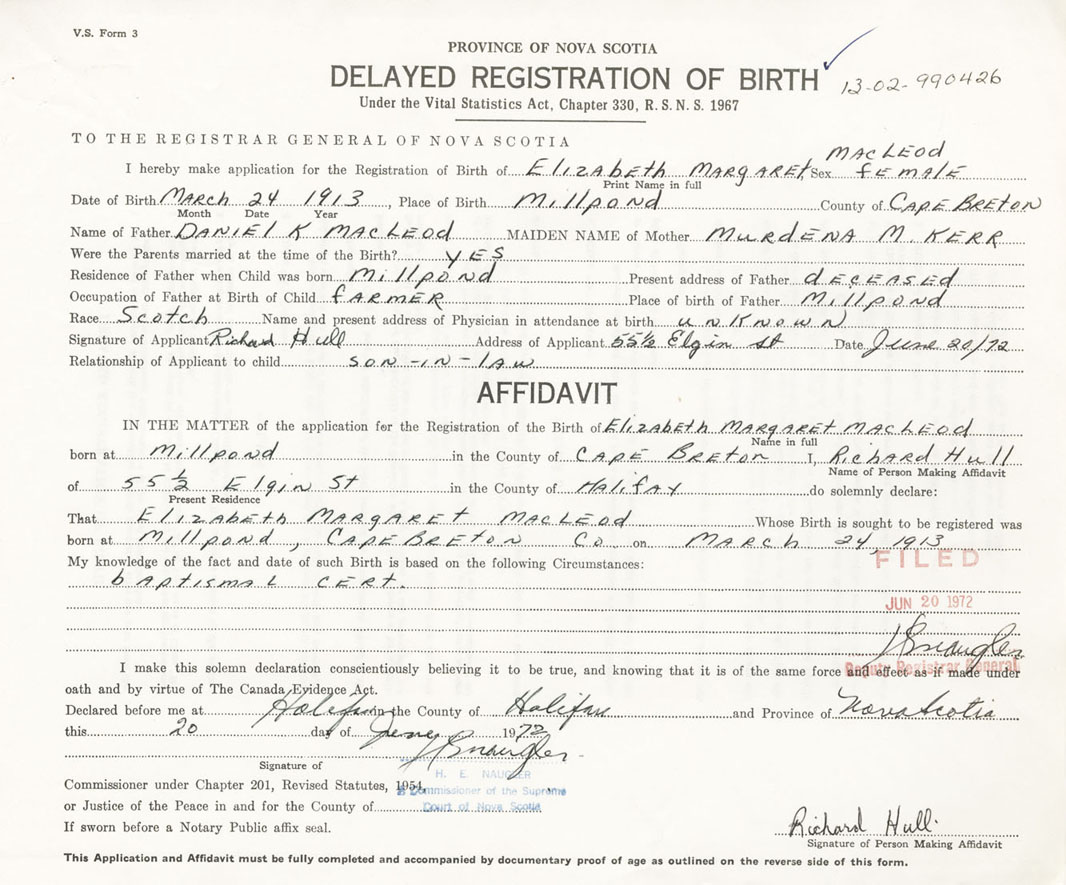 V.S. Form 3
PROVINCE OF NOVA SCOTIA
DELAYED REGISTRATION OF BIRTH
13-02-990426
Under the Vital Statistics Act, Chapter 330, R.S.N.S. 1967
TO THE REGISTRAR GENERAL OF NOVA SCOTIA
MacLEOD
I hereby make application for the Registration of Birth of Elizabeth Margaret Sex female
Print Name in full
Date of Birth March 24 1913, Place of Birth Millpond County of Cape Breton
Month Date Year
Name of Father Daniel K MacLeod MAIDEN NAME of Mother Murdena M. Kerr
Were the Parents married at the time of the Birth? yes
Residence of Father when Child was born Millpond Present address of Father deceased
Occupation of Father at Birth of Child farmer Place of birth of Father Millpond
Race Scotch Name and present address of Physician in attendance at birth unknown
Signature of Applicant Richard Hull Address of Applicant 55½ Elgin St Date June 20/72
Relationship of Applicant to child son-in-law
AFFIDAVIT
IN THE MATTER of the application for the Registration of the Birth of Elizabeth Margaret MacLeod
Name in full
born at Millpond in the County of Cape Breton I, Richard Hull
Name of Person Making Affidavit
of 55½ Elgin St in the County of Halifax do solemnly declare:
Present Residence
That Elizabeth Margaret MacLeod Whose Birth is sought to be registered was
born at Millpond, Cape Breton Co on March 24, 1913
FILED
My knowledge of the fact and date of such Birth is based on the following Circumstances:
baptismal cert.
JUN 20 1972
HE Naugler
Deputy Registrar General
I make this solemn declaration conscientiously believing it to be true, and knowing that it is of the same force and effect as if made under
oath and by virtue of The Canada Evidence Act.
Declared before me at Halifax in the County of Halifax and Province of Nova Scotia
this 20 day of June 1972
HE Naugler
Signature of
H. E. NAUGLER
Commissioner under Chapter 201, Revised Statutes, 1954,
A Commissioner of the Supreme
or Justice of the Peace in and for the County of
Court of Nova Scotia
If sworn before a Notary Public affix seal.
Richard Hull
Signature of Person Making Affidavit
This Application and Affidavit must be fully completed and accompanied by documentary proof of age as outlined on the reverse side of this form.